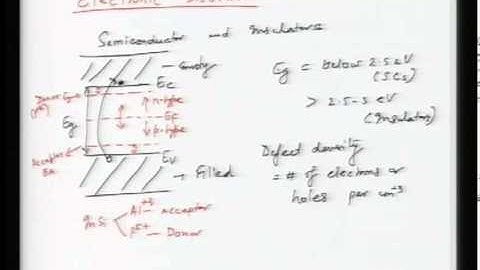 ELECTRONIC
Semiconductor and Insulators
Empty
Ec
Donor
n-type
Eg
EF
p-type
Acceptor
Ev
Filled
in Si
Al+3 - acceptor
P5+ - Donor
Eg = below 2.5 eV
(SCs)
> 2.5-3 eV
(Insulator)
Defect density
= # of electrons or
holes per cm-3